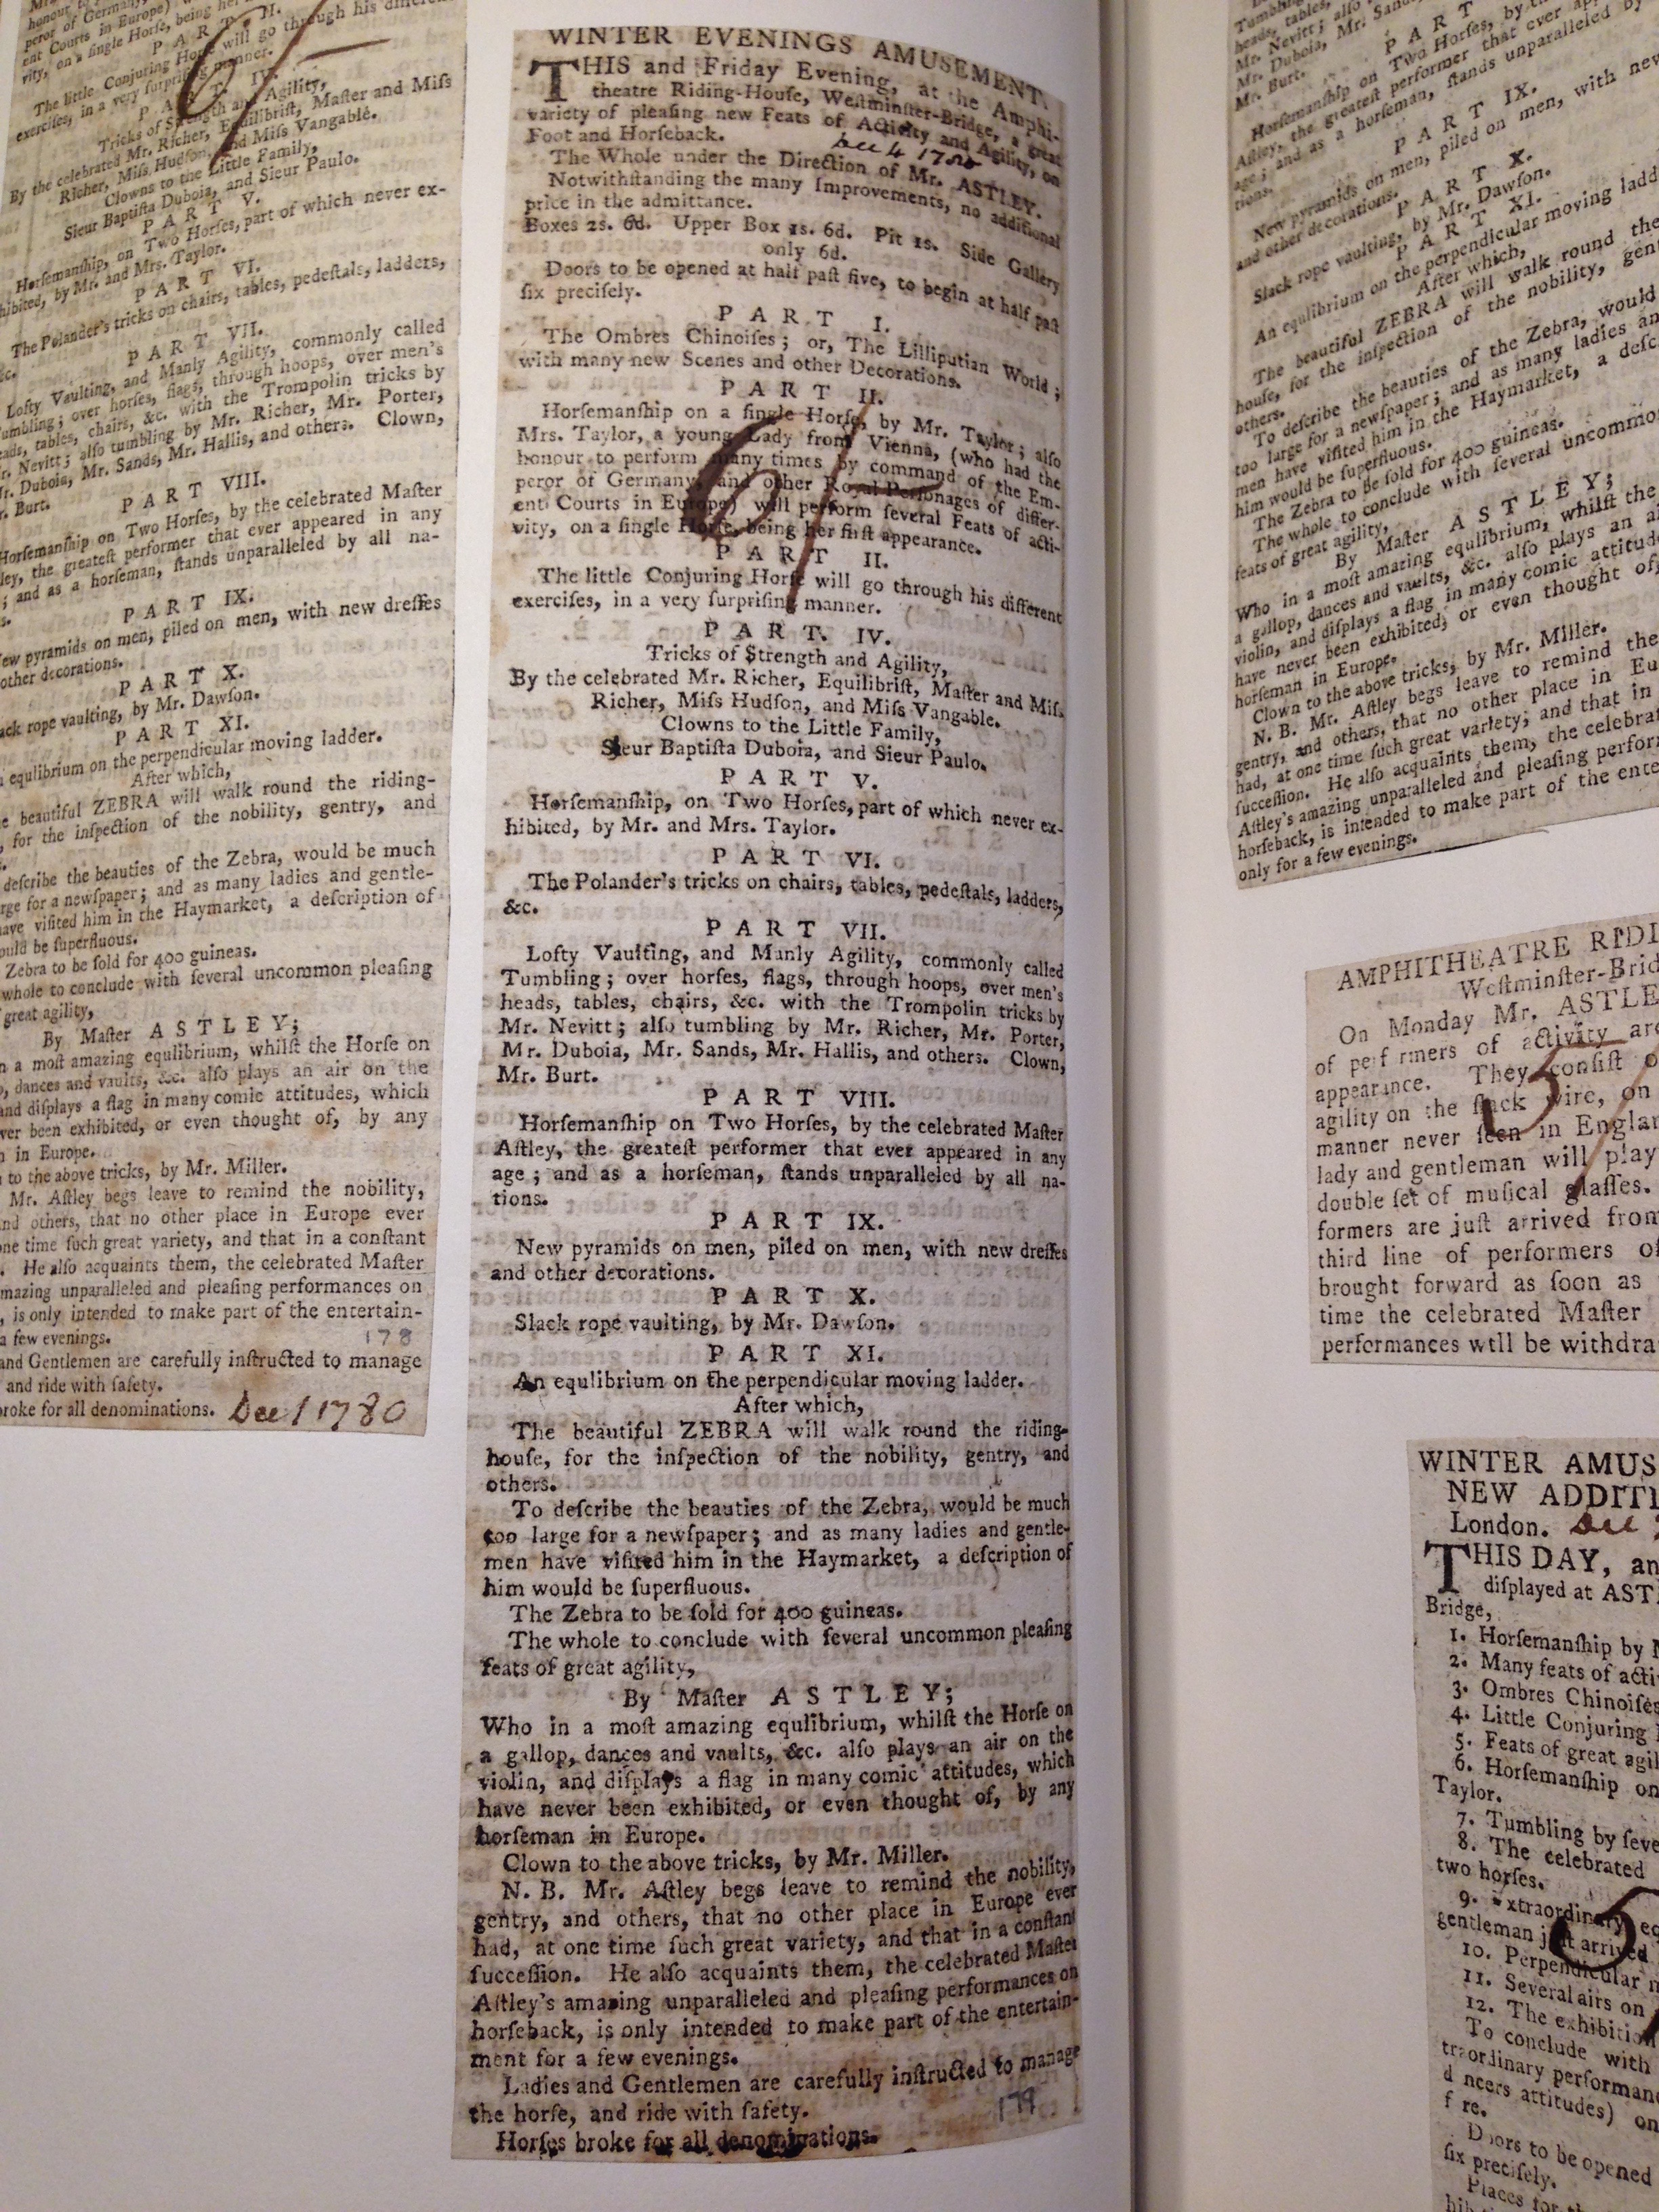 honour to
peror of Germany,
ent Courts in Europe)
vity, on a single Horſe, being her
P A R T II.
The little Conjuring Horſe will go through his different
exerciſes, in a very ſurpriſing manner.
P A R T IV.
Tricks of Strength and Agility,
By the celebrated Mr. Richer, Equilibriſt, Maſter and Miſs
Richer, Miſs Hudſon, and Miſs Vangable.
Clowns to the Little Family,
Sieur Baptiſta Duboia, and Sieur Paulo.
P A R T V.
Horſemanſhip, on Two Horſes, part of which never ex-
hibited, by Mr. and Mrs. Taylor.
P A R T VI.
The Polander's tricks on chairs, tables, pedeſtals, ladders,
&c.
P A R T VII.
Lofty Vaulting, and Manly Agility, commonly called
Tumbling; over horſes, flags, through hoops, over men's
heads, tables, chairs, &c. with the Trompolin tricks by
Mr. Nevitt; alſo tumbling by Mr. Richer, Mr. Porter,
Mr. Duboia, Mr. Sands, Mr. Hallis, and others. Clown,
Mr. Burt.
P A R T VIII.
Horſemanſhip on Two Horſes, by the celebrated Maſter
ley, the greateſt performer that ever appeared in any
; and as a horſeman, ſtands unparalleled by all na-
s.
P A R T IX.
ew pyramids on men, piled on men, with new dreſſes
other decorations.
P A R T X.
ack rope vaulting, by Mr. Dawſon.
P A R T XI.
equlibrium on the perpendicular moving ladder.
After which,
e beautiful ZEBRA will walk round the riding-
, for the inſpection of the nobility, gentry, and
deſcribe the beauties of the Zebra, would be much
rge for a newſpaper; and as many ladies and gentle-
have viſited him in the Haymarket, a deſcription of
ould be ſuperfluous.
Zebra to be ſold for 400 guineas.
whole to conclude with ſeveral uncommon pleaſing
great agility,
By Maſter A S T L E Y;
n a moſt amazing equlibrium, whilſt the Horſe on
, dances and vaults, &c. alſo plays an air on the
and diſplays a flag in many comic attitudes, which
ver been exhibited, or even thought of, by any
n in Europe.
to the above tricks, by Mr. Miller.
Mr. Aſtley begs leave to remind the nobility,
and others, that no other place in Europe ever
one time ſuch great variety, and that in a conſtant
. He alſo acquaints them, the celebrated Maſter
mazing unparalleled and pleaſing performances on
, is only intended to make part of the entertain-
a few evenings.
178
and Gentlemen are carefully inſtructed to manage
and ride with ſafety.
broke for all denominations. Dec 1 1780
WINTER EVENINGS AMUSEMENT.
THIS and Friday Evening, at the Amphi-
theatre Riding-Houſe, Weſtminſter-Bridge, a great
variety of pleaſing new Feats of Activity and Agility, on
Foot and Horſeback.
Dec 4 1780
The Whole under the Direction of Mr. ASTLEY.
Notwithſtanding the many Improvements, no additional
price in the admittance.
Boxes 2s. 6d. Upper Box 1s. 6d. Pit 1s. Side Gallery
only 6d.
Doors to be opened at half paſt five, to begin at half paſt
ſix preciſely.
P A R T I.
The Ombres Chinoiſes; or, The Lilliputian World;
with many new Scenes and other Decorations.
P A R T II.
Horſemanſhip on a ſingle Horſe, by Mr. Taylor; alſo
Mrs. Taylor, a young Lady from Vienna, (who had the
honour to perform many times by command of the Em-
peror of Germany, and other Royal Perſonages of differ-
ent Courts in Europe) will perform ſeveral Feats of acti-
vity, on a ſingle Horſe, being her firſt appearance.
P A R T II.
The little Conjuring Horſe will go through his different
exerciſes, in a very ſurpriſing manner.
P A R T. IV.
Tricks of Strength and Agility,
By the celebrated Mr. Richer, Equilibriſt, Maſter and Miſs
Richer, Miſs Hudſon, and Miſs Vangable.
Clowns to the Little Family,
Sieur Baptiſta Duboia, and Sieur Paulo.
P A R T V.
Horſemanſhip, on Two Horſes, part of which never ex-
hibited, by Mr. and Mrs. Taylor.
P A R T VI.
The Polander's tricks on chairs, tables, pedeſtals, ladders,
&c.
P A R T VII.
Lofty Vaulting, and Manly Agility, commonly called
Tumbling; over horſes, flags, through hoops, over men's
heads, tables, chairs, &c. with the Trompolin tricks by
Mr. Nevitt; alſo tumbling by Mr. Richer, Mr. Porter,
Mr. Duboia, Mr. Sands, Mr. Hallis, and others. Clown,
Mr. Burt.
P A R T VIII.
Horſemanſhip on Two Horſes, by the celebrated Maſter
Aſtley, the greateſt performer that ever appeared in any
age; and as a horſeman, ſtands unparalleled by all na-
tions.
P A R T IX.
New pyramids on men, piled on men, with new dreſſes
and other decorations.
P A R T X.
Slack rope vaulting, by Mr. Dawſon.
P A R T XI.
An equlibrium on the perpendicular moving ladder.
After which,
The beautiful ZEBRA will walk round the riding-
houſe, for the inſpection of the nobility, gentry, and
others.
To deſcribe the beauties of the Zebra, would be much
too large for a newſpaper; and as many ladies and gentle-
men have viſited him in the Haymarket, a deſcription of
him would be ſuperfluous.
The Zebra to be ſold for 400 guineas.
The whole to conclude with ſeveral uncommon pleaſing
feats of great agility,
By Maſter A S T L E Y;
Who in a moſt amazing equlibrium, whilſt the Horſe on
a gallop, dances and vaults, &c. alſo plays an air on the
violin, and diſplays a flag in many comic attitudes, which
have never been exhibited, or even thought of, by any
horſeman in Europe.
Clown to the above tricks, by Mr. Miller.
N. B. Mr. Aſtley begs leave to remind the nobility,
gentry, and others, that no other place in Europe ever
had, at one time ſuch great variety, and that in a conſtant
ſucceſſion. He alſo acquaints them, the celebrated Maſter
Aſtley's amazing unparalleled and pleaſing performances on
horſeback, is only intended to make part of the entertain-
ment for a few evenings.
Ladies and Gentlemen are carefully inſtructed to manage
the horſe, and ride with ſafety.
179
Horſes broke for all denominations.
Tumbling
heads, tables,
Mr. Nevitt; alſo
Mr. Duboia, Mr. Sands,
Mr. Burt.
P A R T
Horſemanſhip on Two Horſes, by
Aſtley, the greateſt performer that ever
age; and as a horſeman, ſtands unparalleled by
tions.
P A R T IX.
New pyramids on men, piled on men, with new
and other decorations.
P A R T X.
Slack rope vaulting, by Mr. Dawſon.
P A R T XI.
An equlibrium on the perpendicular moving ladd
After which,
The beautiful ZEBRA will walk round the
houſe, for the inſpection of the nobility, gent
others.
To deſcribe the beauties of the Zebra, would
too large for a newſpaper; and as many ladies an
men have viſited him in the Haymarket, a deſc
him would be ſuperfluous.
The Zebra to be ſold for 400 guineas.
The whole to conclude with ſeveral uncommo
feats of great agility,
By Maſter A S T L E Y;
Who in a moſt amazing equlibrium, whilſt the
a gallop, dances and vaults, &c. alſo plays an ai
violin, and diſplays a flag in many comic attitud
have never been exhibited, or even thought of,
horſeman in Europe.
Clown to the above tricks, by Mr. Miller.
N. B. Mr. Aſtley begs leave to remind the
gentry, and others, that no other place in Eu
had, at one time ſuch great variety; and that in
ſucceſſion. He alſo acquaints them, the celebrat
Aſtley's amazing unparalleled and pleaſing perform
horſeback, is intended to make part of the ente
only for a few evenings.
AMPHITHEATRE RIDI
Weſtminſter-Brid
On Monday Mr. ASTLE
of perf rmers of activity are
appearance. They conſiſt o
agility on the ſlack wire, on
manner never ſeen in Englan
lady and gentleman will play
double ſet of muſical glaſſes.
formers are juſt arrived from
third line of performers of
brought forward as ſoon as
time the celebrated Maſter
performances will be withdra
WINTER AMUS
NEW ADDITI
London. Dec
THIS DAY, an
diſplayed at AST
Bridge,
1. Horſemanſhip by M
2. Many feats of acti
3. Ombres Chinoiſes
4. Little Conjuring
5. Feats of great agil
6. Horſemanſhip on
Taylor.
7. Tumbling by ſeve
8. The celebrated
two horſes.
9. Extraordinary eq
gentleman juſt arrived
10. Perpendicular m
11. Several airs on
12. The exhibition
To conclude with
traordinary performan
d ncers attitudes) on
f re.
Doors to be opened
ſix preciſely.
Places for